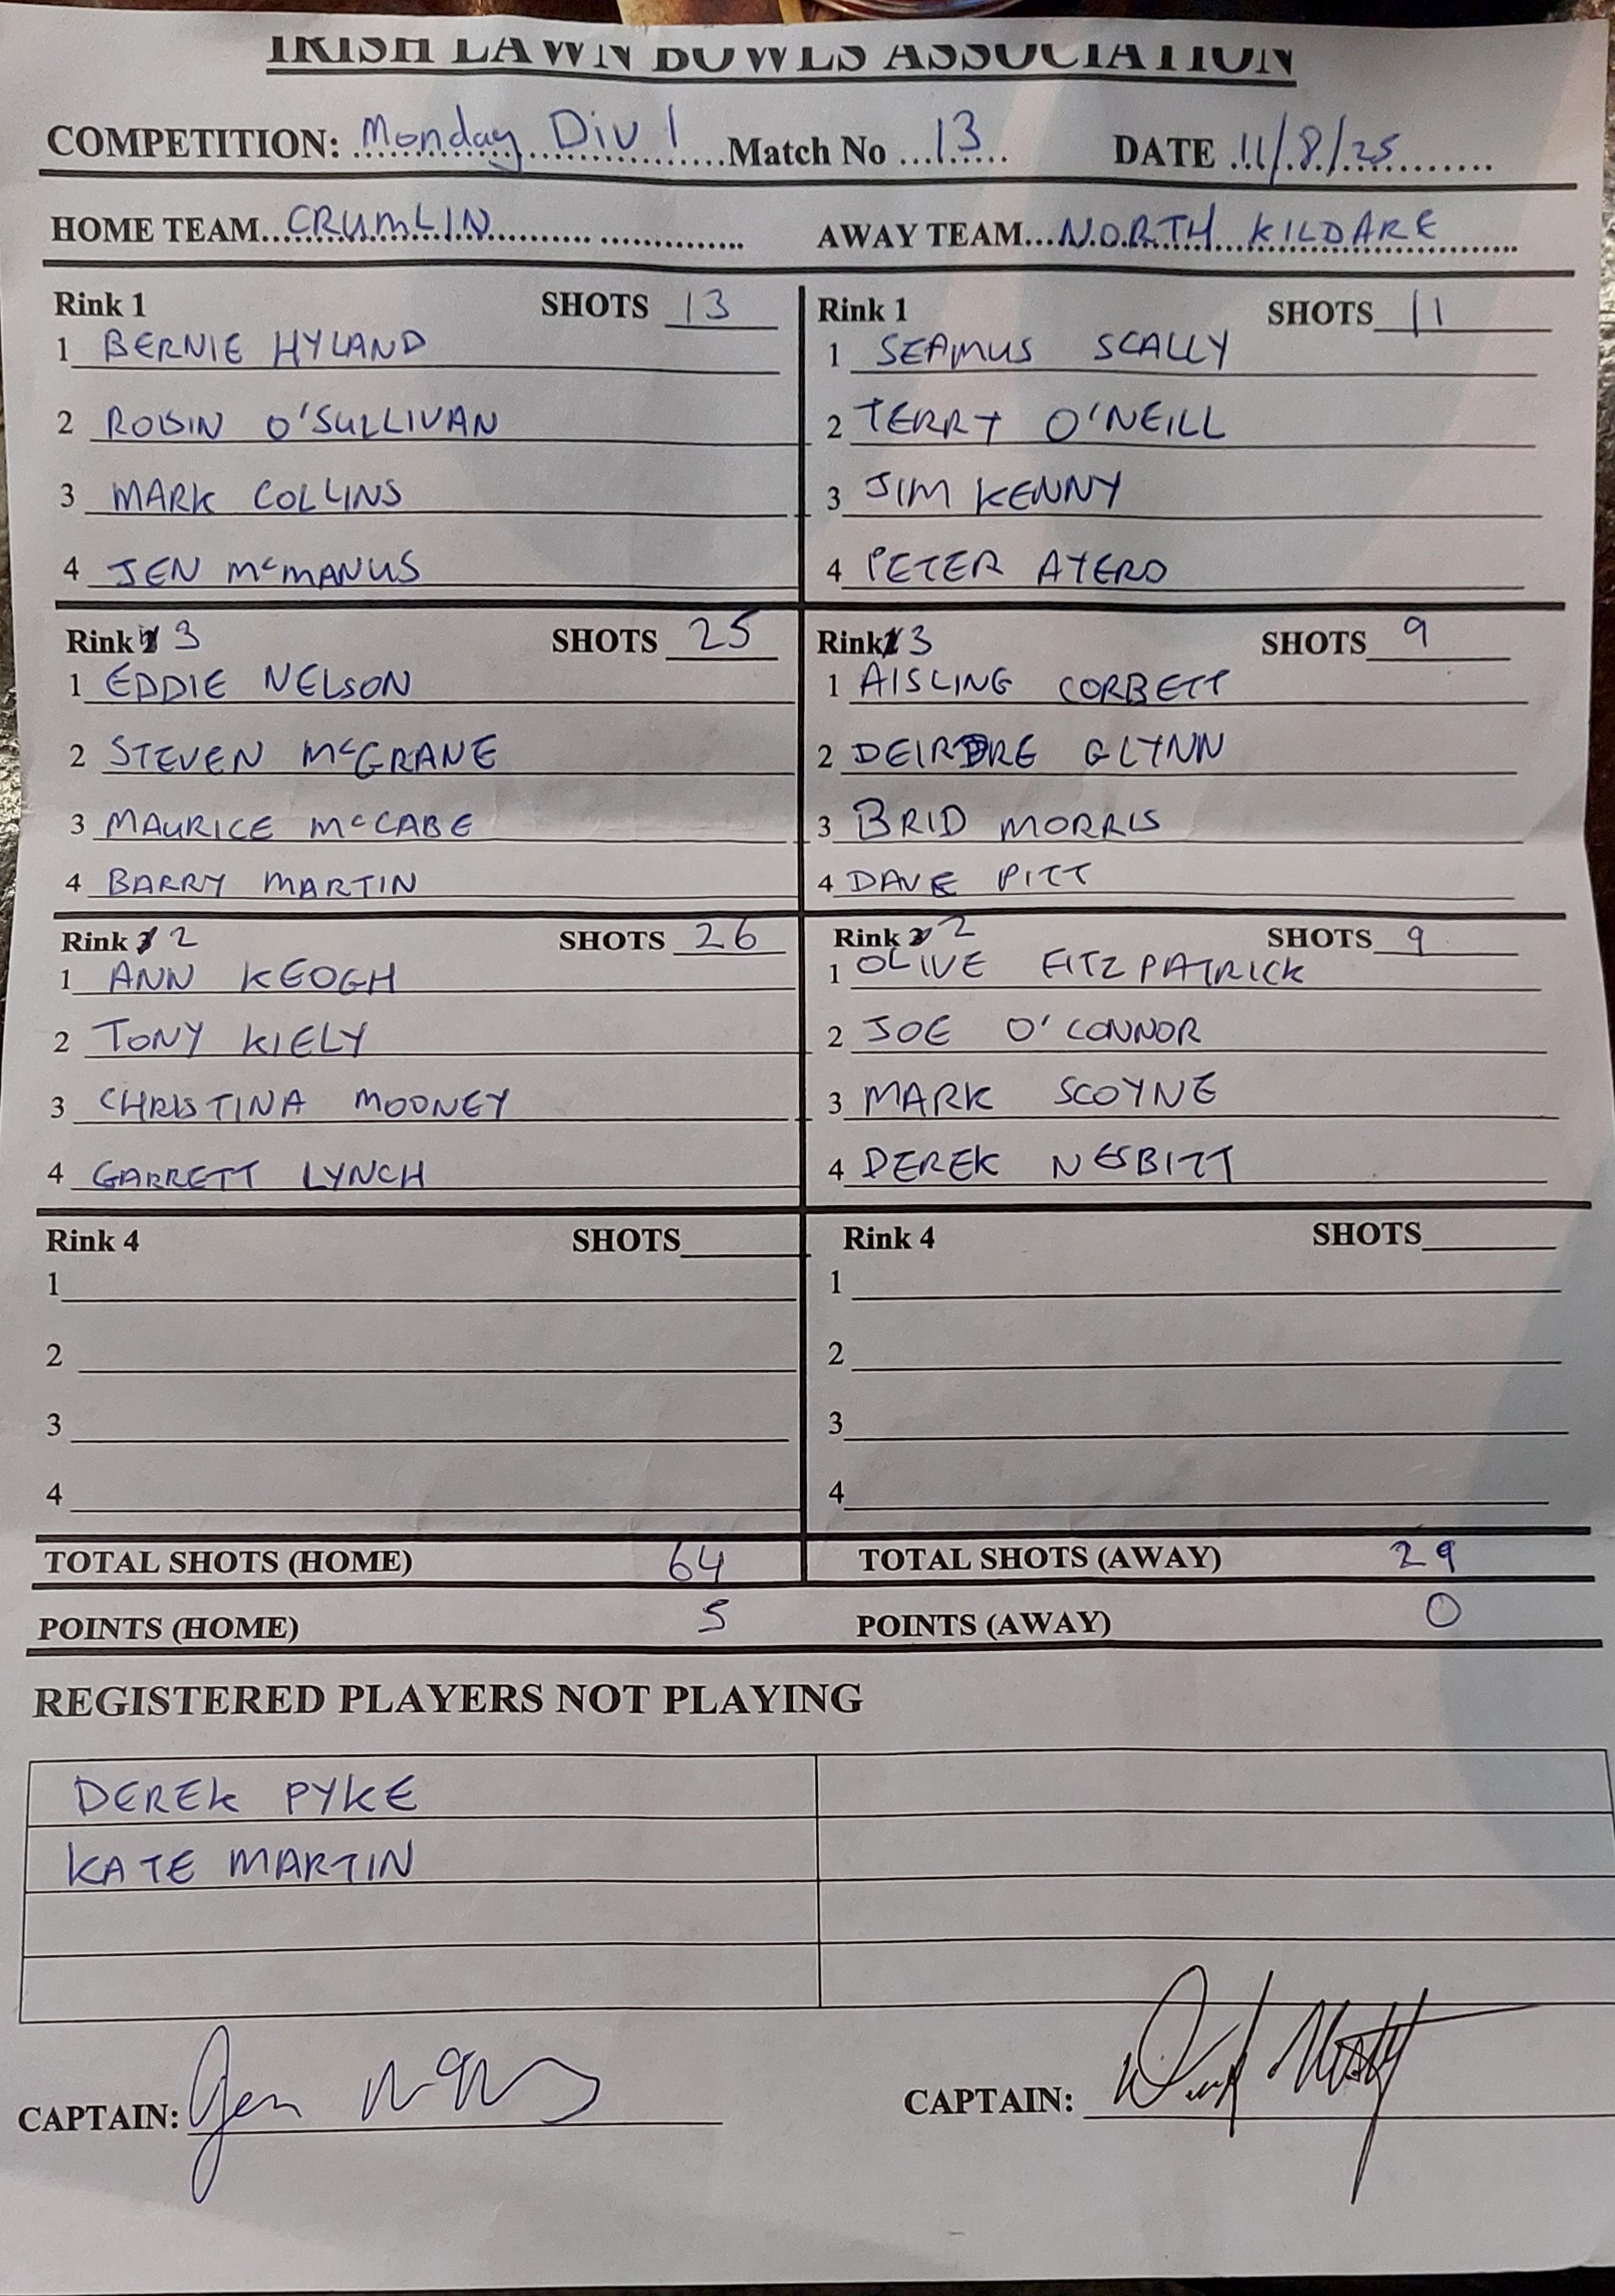 IRISH LAWN BOWLS ASSOCIATION
COMPETITION: Monday Div 1 Match No 13 DATE 11/8/25
HOME TEAM CRUMLIN AWAY TEAM NORTH KILDARE
Rink 1 SHOTS 13
1 BERNIE HYLAND
2 ROBIN O'SULLIVAN
3 MARK COLLINS
4 JEN McMANUS
Rink 1 SHOTS 11
1 SEAMUS SCALLY
2 TERRY O'NEILL
3 JIM KENNY
4 PETER AYERS
Rink 3 SHOTS 25
1 EDDIE NELSON
2 STEVEN McGRANE
3 MAURICE McCABE
4 BARRY MARTIN
Rink 3 SHOTS 9
1 AISLING CORBETT
2 DEIRDRE GLYNN
3 BRID MORRIS
4 DAVE PITT
Rink 2 SHOTS 26
1 ANN KEOGH
2 TONY KIELY
3 CHRISTINA MOONEY
4 GARRETT LYNCH
Rink 2 SHOTS 9
1 OLIVE FITZPATRICK
2 JOE O'CONNOR
3 MARK SCOYNE
4 DEREK NESBITT
Rink 4 SHOTS
1
2
3
4
Rink 4 SHOTS
1
2
3
4
TOTAL SHOTS (HOME) 64 TOTAL SHOTS (AWAY) 29
POINTS (HOME) 5 POINTS (AWAY) 0
REGISTERED PLAYERS NOT PLAYING
DEREK PYKE
KATE MARTIN
CAPTAIN: Jen
CAPTAIN: